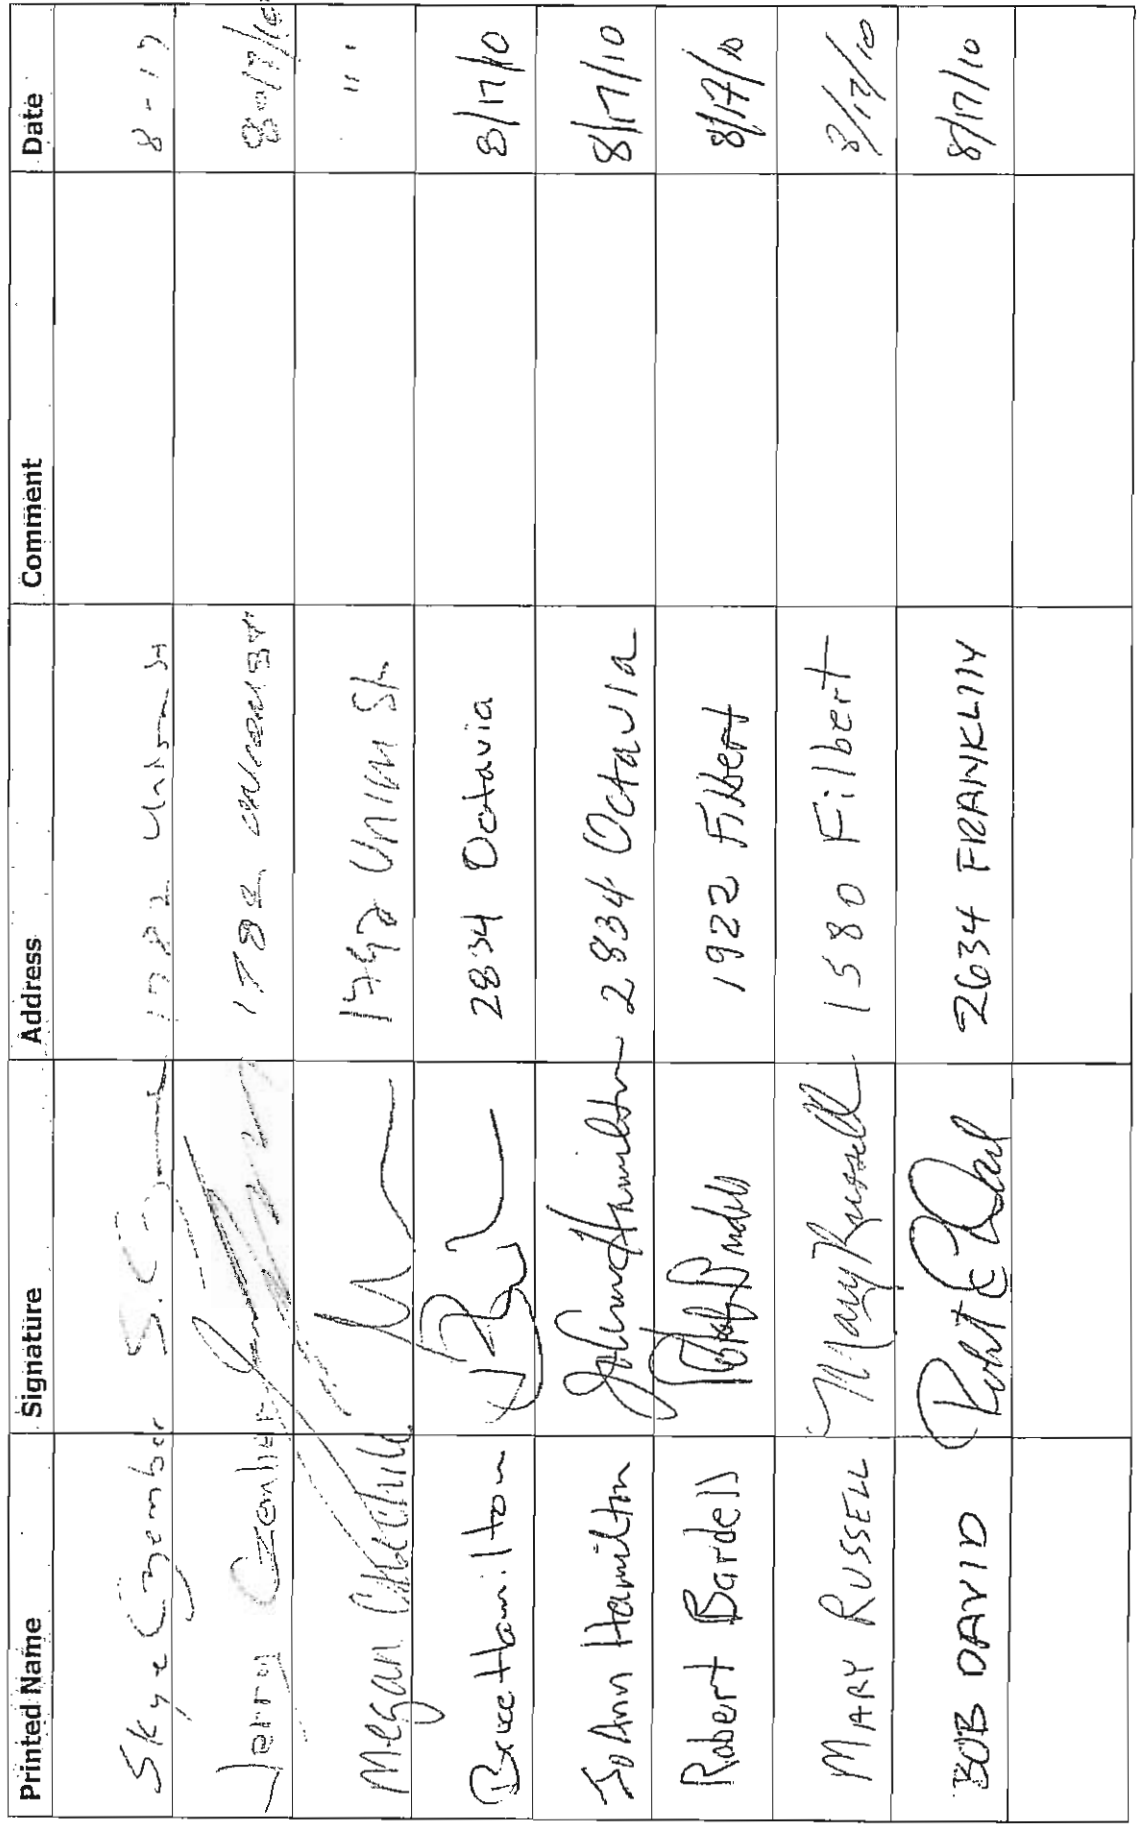 Printed Name Signature Address Comment Date
Skye Czember S. C 1782 Union St 8-17
Jerry Czember 1782 8-17/10
Megan 1782 Union St " '
Bruce Hamilton 2834 Octavia 8/17/10
JoAnn Hamilton JoAnn Hamilton 2834 Octavia 8/17/10
Robert Bardell 1922 Filbert 8/17/10
MARY RUSSELL Mary Russell 1580 Filbert 8/17/10
BOB DAVID Robert E David 2634 FRANKLIN 8/17/10